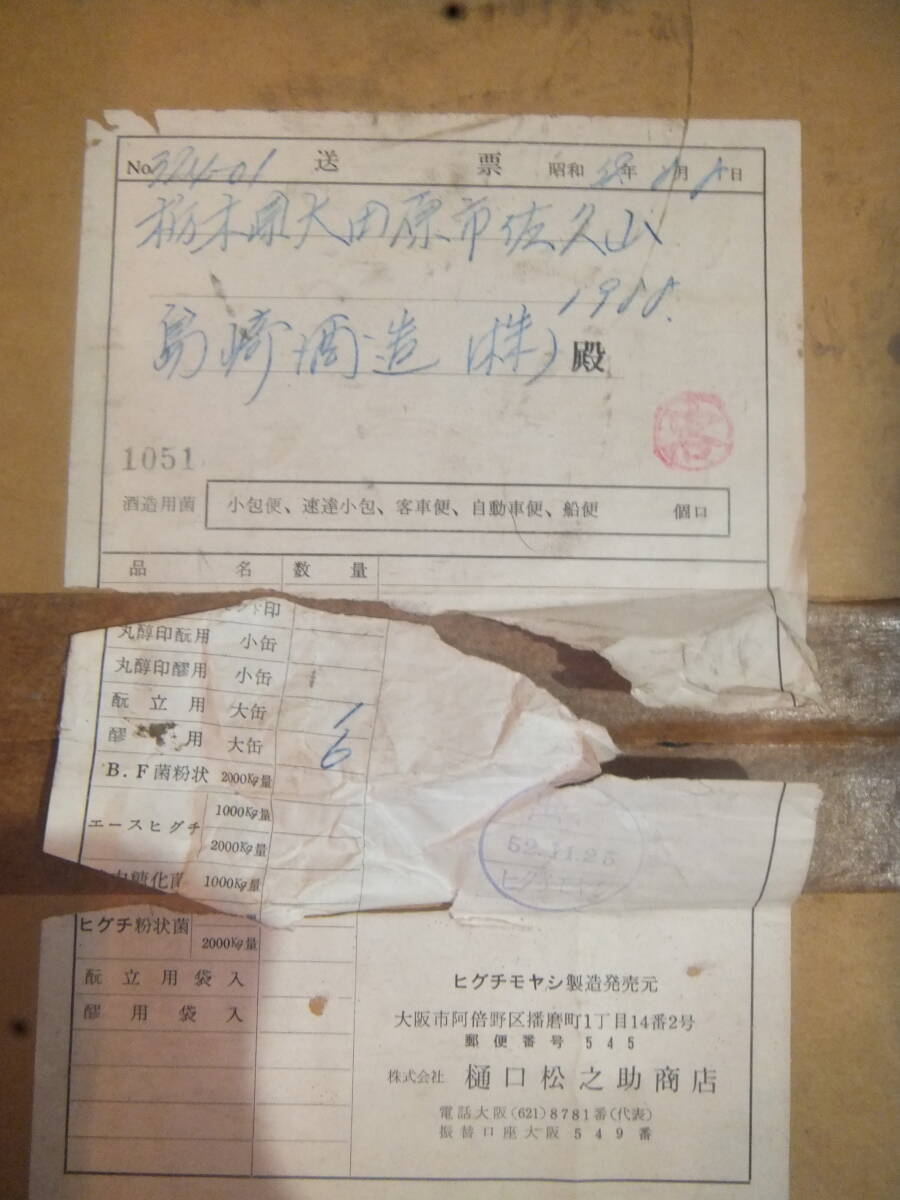 No 324-01 送票 昭和 年 月 日
栃木県大田原市佐久山
1988.
島崎酒造(株)殿
1051
酒造用菌 小包便、速達小包、客車便、自動車便、船便 個口
品名 数量
ンド印
丸醇印酛用 小缶
丸醇印醪用 小缶
酛立用 大缶 1
醪用 大缶 6
B.F菌粉状 2000Kg量
エースヒグチ 1000Kg量
2000Kg量
糖化菌 1000Kg量
ヒグチ粉状菌
2000Kg量
酛立用袋入
醪用袋入
52.11.25
ヒグチモヤシ製造発売元
大阪市阿倍野区播磨町1丁目14番2号
郵便番号 545
株式会社 樋口松之助商店
電話大阪(621)8781番(代表)
振替口座大阪549番